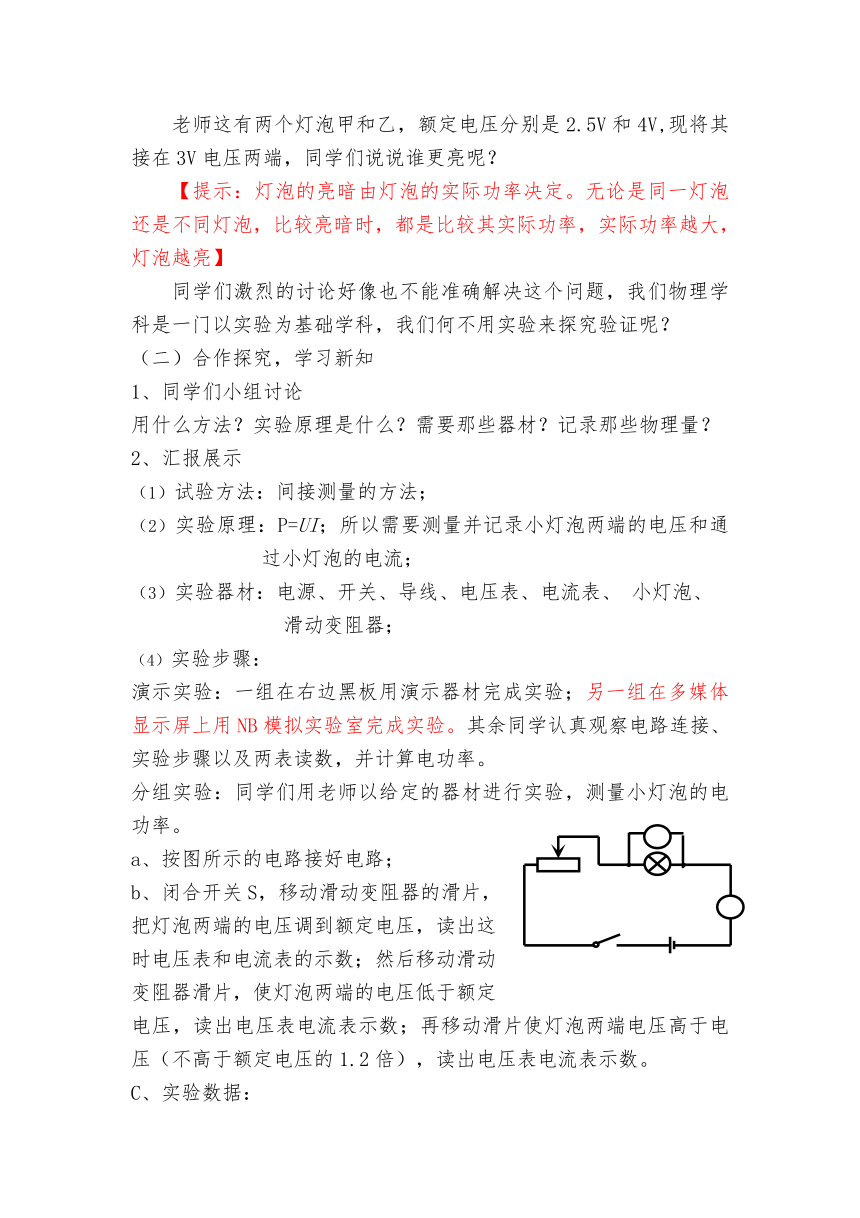 老师这有两个灯泡甲和乙，额定电压分别是2.5V和4V,现将其
接在3V电压两端，同学们说说谁更亮呢？
【提示：灯泡的亮暗由灯泡的实际功率决定。无论是同一灯泡
还是不同灯泡，比较亮暗时，都是比较其实际功率，实际功率越大，
灯泡越亮】
同学们激烈的讨论好像也不能准确解决这个问题，我们物理学
科是一门以实验为基础学科，我们何不用实验来探究验证呢？
（二）合作探究，学习新知
1、同学们小组讨论
用什么方法？实验原理是什么？需要那些器材？记录那些物理量？
2、汇报展示
（1）试验方法：间接测量的方法；
（2）实验原理：P=UI；所以需要测量并记录小灯泡两端的电压和通
过小灯泡的电流；
（3）实验器材：电源、开关、导线、电压表、电流表、 小灯泡、
滑动变阻器；
（4）实验步骤：
演示实验：一组在右边黑板用演示器材完成实验；另一组在多媒体
显示屏上用NB模拟实验室完成实验。其余同学认真观察电路连接、
实验步骤以及两表读数，并计算电功率。
分组实验：同学们用老师以给定的器材进行实验，测量小灯泡的电
功率。
a、按图所示的电路接好电路；
b、闭合开关S，移动滑动变阻器的滑片，
把灯泡两端的电压调到额定电压，读出这
时电压表和电流表的示数；然后移动滑动
变阻器滑片，使灯泡两端的电压低于额定
电压，读出电压表电流表示数；再移动滑片使灯泡两端电压高于电
压（不高于额定电压的1.2倍），读出电压表电流表示数。
C、实验数据：